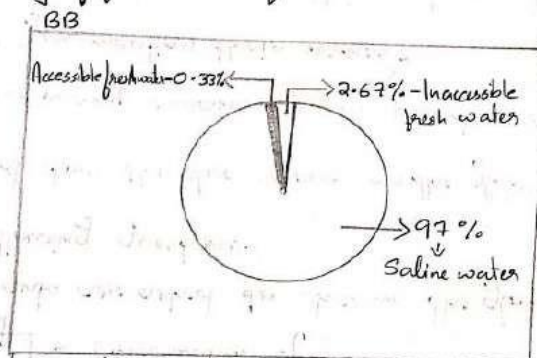 BB
Accessible freshwater-0.33%
2.67%-Inaccessible
fresh water
97%
Saline water